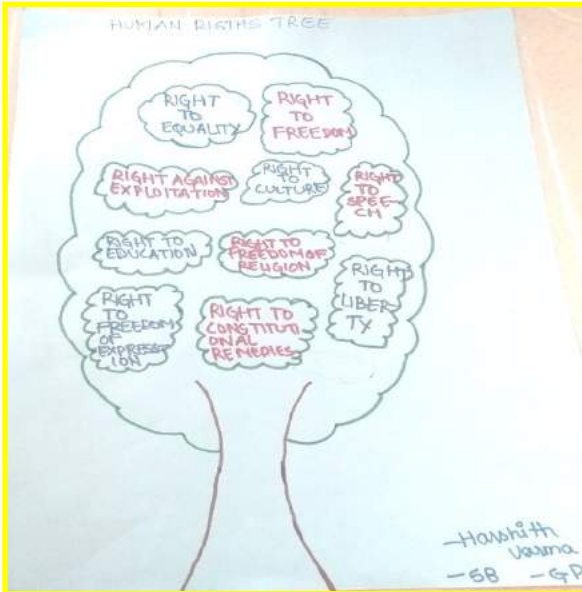 HUMAN RIGTHS TREE
RIGHT
TO
EQUALITY
RIGHT
TO
FREEDOM
RIGHT AGAINST
EXPLOITATION
RIGHT
TO
CULTURE
RIGHT
TO
SPEE-
CH
RIGHT TO
EDUCATION
RIGHT TO
FREEDOM OF
RELIGION
RIGHT
TO
LIBER
TY
RIGHT
TO
FREEDOM
OF
EXPRESSION
ION
RIGHT TO
CONSTITUTI
ONAL
REMEDIES
-Harshith
Varma
-5B -GP